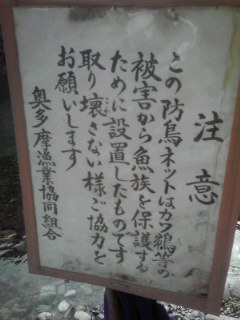 注意
この防鳥ネットはカワ鵜等の
被害から魚族を保護する
ために設置したものです
取り壊さない様ご協力を
お願いします
奥多摩漁業協同組合